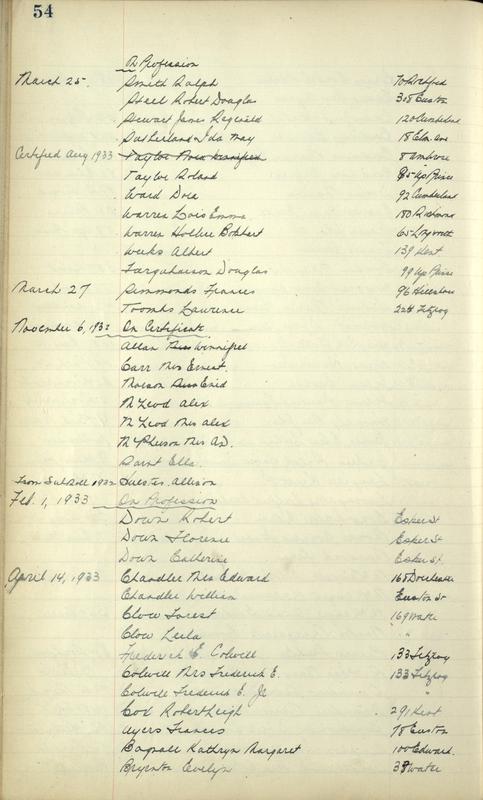 54
On Profession
March 25. Smith Ralph 70 Rochford
Stead Robert Douglas 308 Euston
Stewart James Reginald 120 Cumberland
Sutherland Ida May 18 Elm Ave
Certified Aug 1933 Taylor Nora Winnifred 8 Ambrose
Taylor Roland 85 Up Prince
Ward Dora 92 Cumberland
Warren Lois Emma 180 Richmond
Warren Hollie 65 Longworth
Weeks Albert 139 Kent
Farquharson Douglas 99 Up Prince
March 27 Simmonds Frances 96 Hillsboro
Toombs Lawrence 224 Fitzroy
November 6, 1932 On Certificate
Allan Miss Winnifred
Carr Mrs Ernest.
Miss Enid
McLeod Alex
McLeod Mrs Alex
McPherson Mrs
Saint Ella.
From 1932 Huestis. Allison
Feb. 1, 1933 On Profession
Down Robert Esker St
Down Florence Esker St
Down Catherine Esker St.
April 14, 1933 Chandler Mrs Edward 165 Dorchester
Chandler William Euston St
Clow Forest 169 Water
Clow Leila " "
Frederick E. Colwill 133 Fitzroy
Colwill Mrs Frederick E. 133 Fitzroy
Colwill Frederick E. Jr "
Cox Robert Leigh 291 Kent
Ayers Frances 78 Euston
Bagnall Kathryn Margaret 100 Edward.
Brynton Evelyn 38 Water